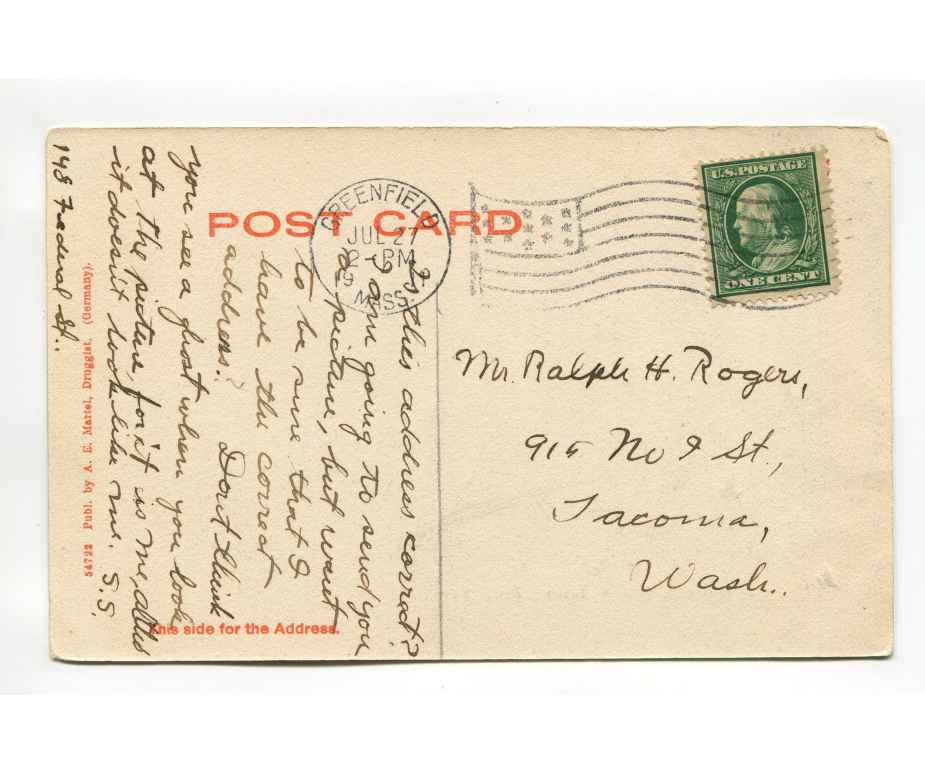 POST CARD
GREENFIELD
JUL 27
2-PM
19
MASS.
U.S. POSTAGE
ONE CENT
Is this address correct?
I am going to send you
a picture, but want
to be sure that I
have the correct
address?
Don't think
you see a ghost when you look
at the picture for it is me,
it doesn't look like me. S.S.
148 Federal St..
Mr. Ralph H. Rogers,
915 No I St.,
Tacoma,
Wash..
54722 Publ. by A. E. Martel, Druggist. (Germany).
This side for the Address.